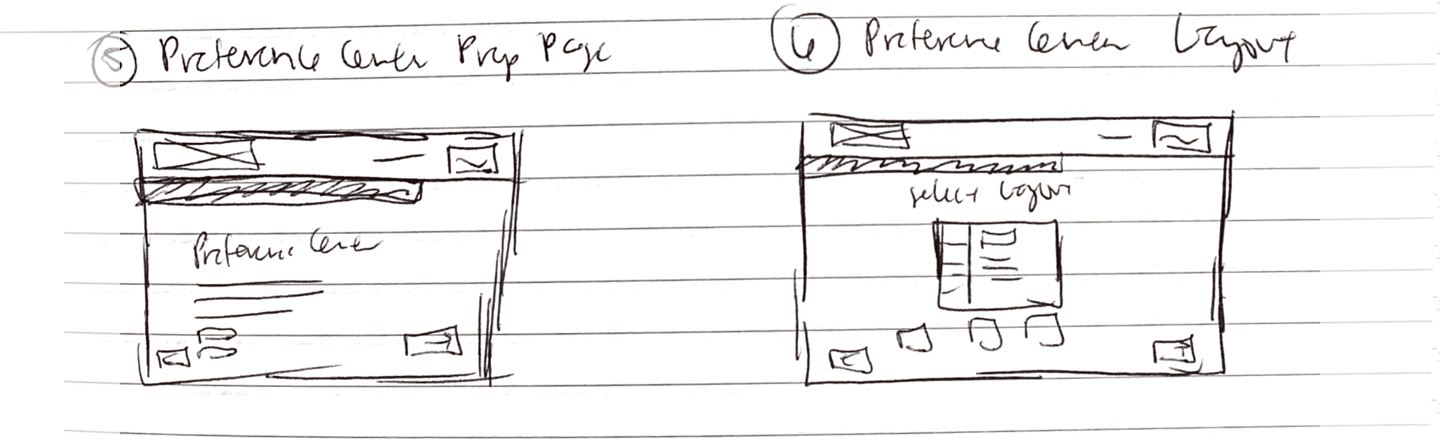 5 Preference Center Prep Page
6 Preference Center Layout
Preference Center
select layout